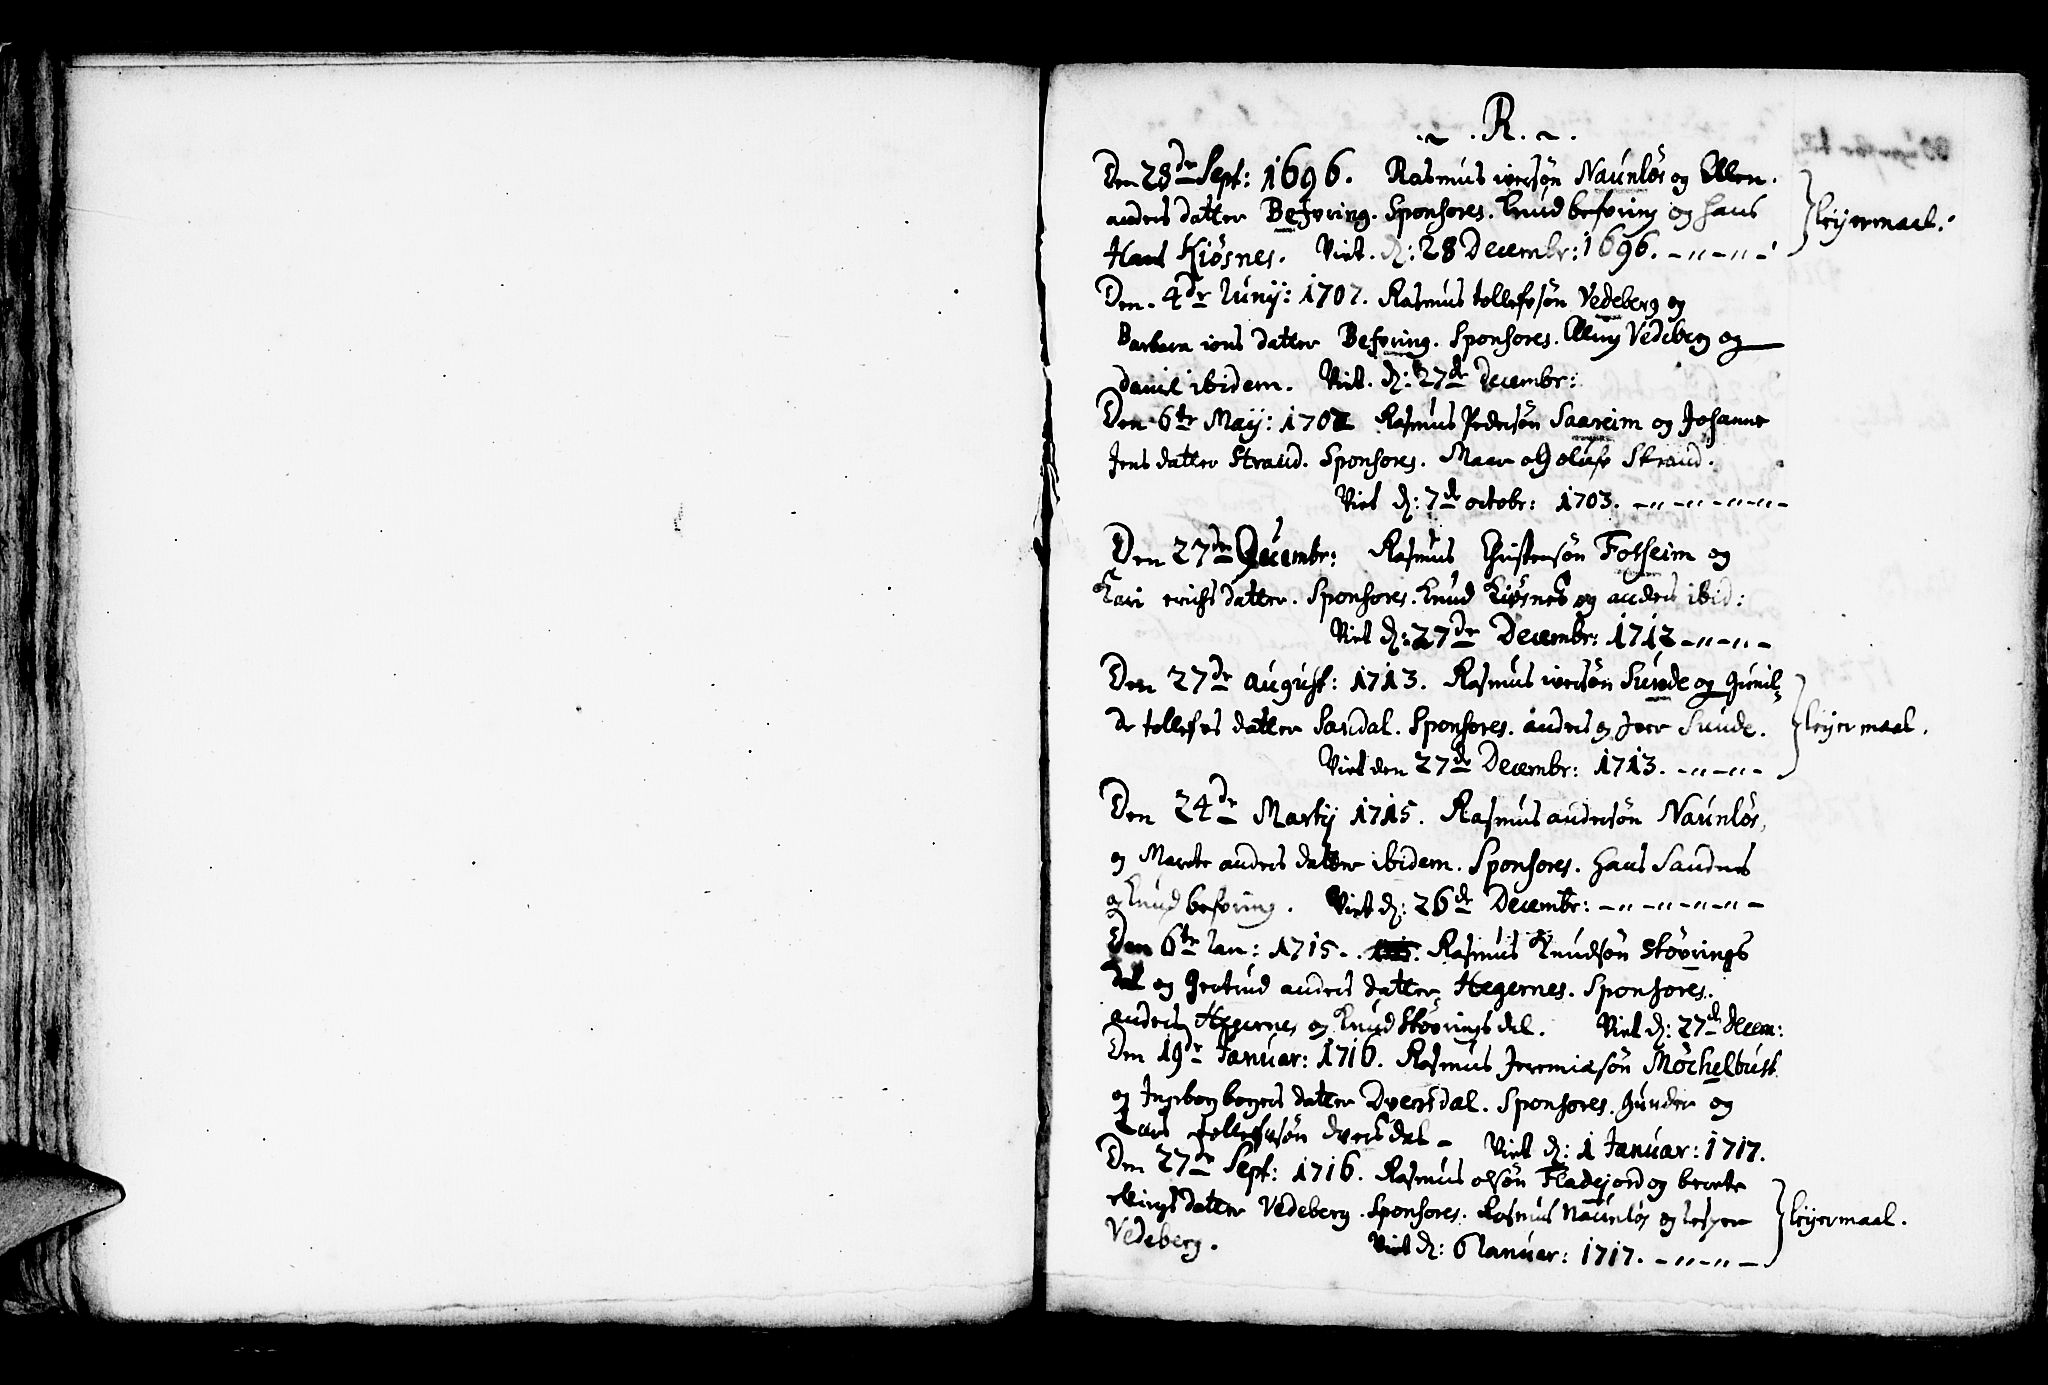 .~ . R. ~ .
Den 28de Sept: 1696. Rasmus iversøn Naúnløs og Ellen.
anders datter Befring. Sponsores. Knud befring og Hans
Hans Kiøsnes. Viet. d: 28 Decembr: 1696. - " - " - '
leijermaal.
Den. 4de Iunij: 1707. Rasmus tollefsøn Vedeberg og
Barbara ions datter Befring. Sponsores. Elling Vedeberg og
daniel ibidem. Viet. d: 27de Decembr:
Den 6te Maij: 1702 Rasmus Pedersøn Saareim og Johanne
Jens datter Strand. Sponsores. Mær og oluf Strand.
Viet d: 7de octobr: 1703. - " - " - " - " -
Den 27de Decembr: Rasmus Christensøn Folheim og
Kari erichs datter. Sponsores. Knud Kiøsnes og anders ibid:
Viet d: 27de Decembr: 1712 - " - " -
Den 27de august: 1713. Rasmus iversøn Sunde og Gunil-
de tollefs datter Sandal. Sponsores. anders og Iver Sunde.
Viet den 27de Decembr: 1713. - " - " -
leijermaal.
Den 24de Martij 1715. Rasmus andersøn Naúnløs,
og Marete anders datter ibidem. Sponsores. Hans Sandnes
og Knud befring. Viet d: 26de Decembr: - " - " - " - " -
Den 6te Ian: 1715. Rasmus Knudsøn Støvrings
dal og Gertrud anders datter Hegernes. Sponsores.
anders Hegernes og Knud Støvrings dal. Viet d: 27de Decem:
Den 19de Januar: 1716. Rasmus Jeremiæsøn Møchelbust
og Ingeborg børges datter Dversdal. Sponsores. Gunder og
Lars tollefsøn dversdal - Viet d: 1 Januar: 1717.
Den 27de Sept: 1716. Rasmus olsøn Fladejord og berete
ellings datter Vedeberg. Sponsores. Rasmus Naúnløs og Iesper
Vedeberg. Viet d: 6 Ianuar: 1717. - " - " -
leijermaal.